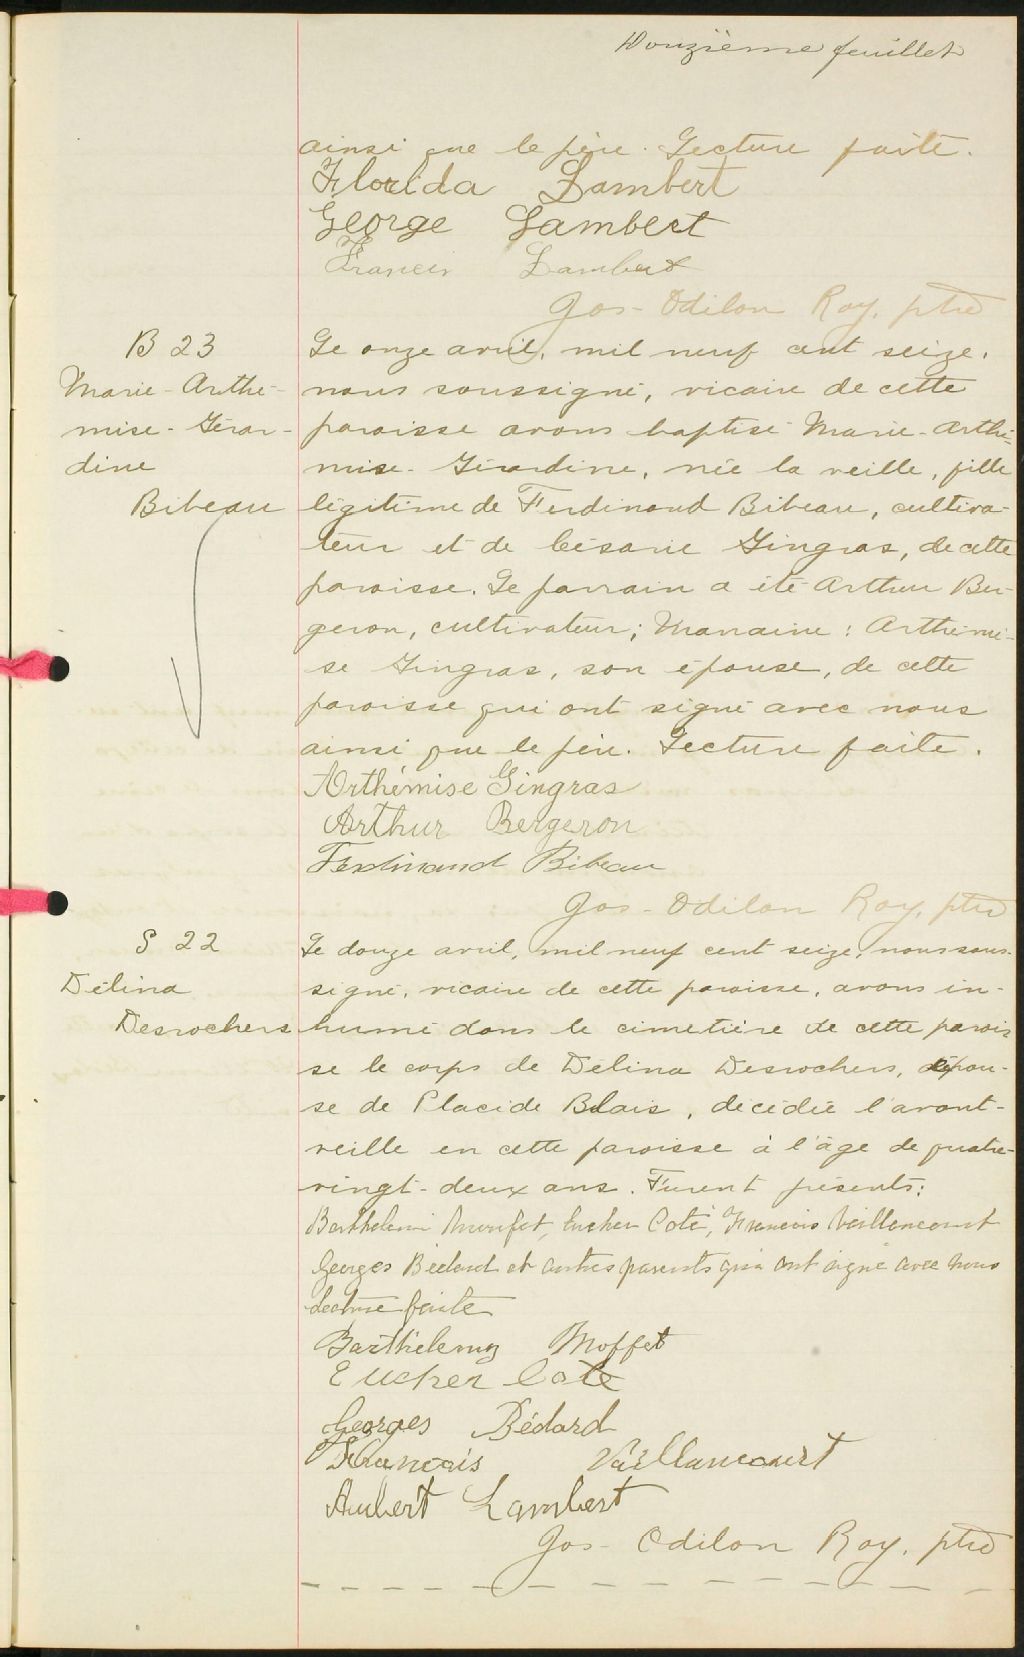 Douzième feuillet
ainsi que le père. Lecture faite.
Florida Lambert
George Lambert
Francis Lambert
Jos-Odilon Roy, ptre
B 23
Marie-Arthé-
mise-Gérar-
dine
Bibeau
Le onze avril, mil neuf cent seize,
nous soussigné, vicaire de cette
paroisse avons baptisé Marie-Arthé-
mise-Gérardine, née la veille, fille
légitime de Ferdinand Bibeau, cultiva-
teur et de Césarie Gingras, de cette
paroisse. Le parrain a été Arthur Ber-
geron, cultivateur; Marraine: Arthémi-
se Gingras, son épouse, de cette
paroisse qui ont signé avec nous
ainsi que le père. Lecture faite.
Arthémise Gingras
Arthur Bergeron
Ferdinand Bibeau
Jos-Odilon Roy, ptre
S 22
Délina
Desrochers
Le douze avril, mil neuf cent seize, nous sous-
signé, vicaire de cette paroisse, avons in-
humé dans le cimetière de cette parois
se le corps de Délina Desrochers, épou-
se de Placide Blais, décédée l'avant-
veille en cette paroisse à l'âge de quatre-
vingt-deux ans. Furent présents:
Barthelemi Coté, François Vaillancourt
Georges Bédard et autres parents qui ont signé avec nous
Lecture faite
Barthélemy Moffet
Eucher Coté
Georges Bédard
François Vaillancourt
Aubert Lambert
Jos-Odilon Roy, ptre